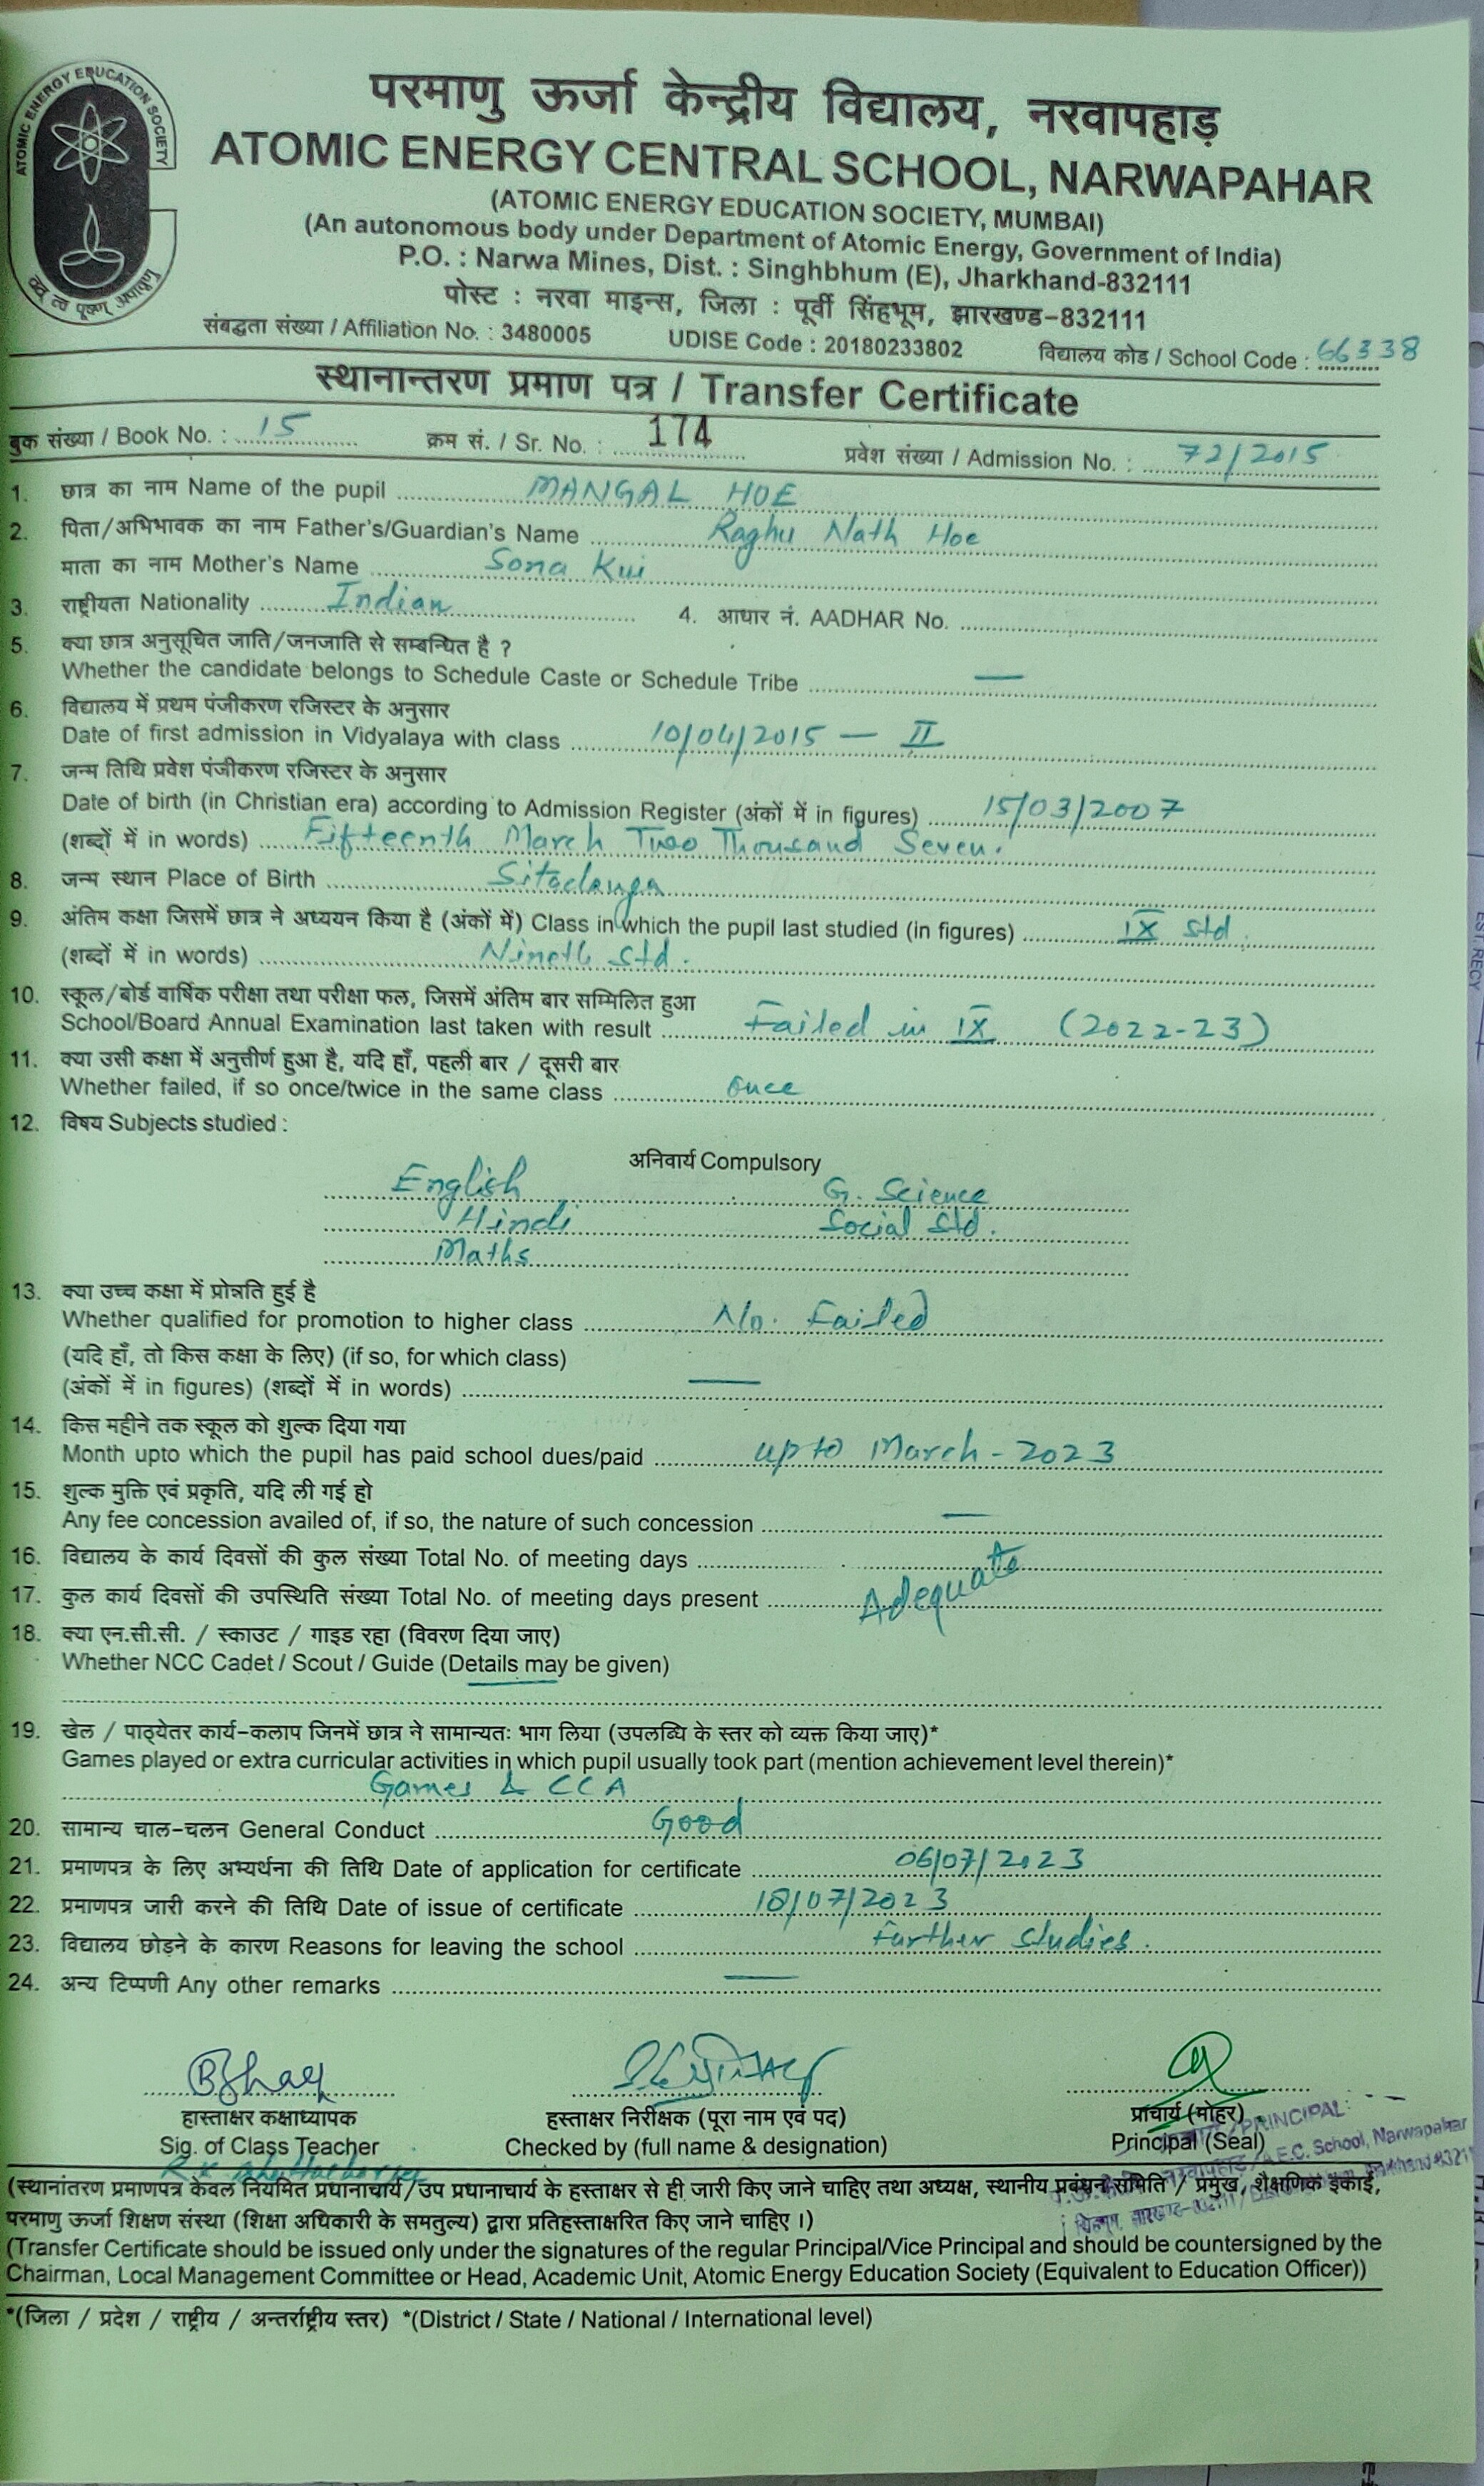 ATOMIC ENERGY EDUCATION SOCIETY
परमाणु ऊर्जा केन्द्रीय विद्यालय, नरवापहाड़
ATOMIC ENERGY CENTRAL SCHOOL, NARWAPAHAR
(ATOMIC ENERGY EDUCATION SOCIETY, MUMBAI)
(An autonomous body under Department of Atomic Energy, Government of India)
P.O. : Narwa Mines, Dist. : Singhbhum (E), Jharkhand-832111
पोस्ट : नरवा माइन्स, जिला : पूर्वी सिंहभूम, झारखण्ड-832111
संबद्धता संख्या / Affiliation No. : 3480005 UDISE Code : 20180233802 विद्यालय कोड / School Code : 66338
स्थानान्तरण प्रमाण पत्र / Transfer Certificate
बुक संख्या / Book No. : 15 क्रम सं. / Sr. No. : 174 प्रवेश संख्या / Admission No. : 72/2015
1. छात्र का नाम Name of the pupil MANGAL HOE
2. पिता/अभिभावक का नाम Father's/Guardian's Name Raghu Nath Hoe
माता का नाम Mother's Name Sona Kui
3. राष्ट्रीयता Nationality Indian 4. आधार नं. AADHAR No.
5. क्या छात्र अनुसूचित जाति/जनजाति से सम्बन्धित है ?
Whether the candidate belongs to Schedule Caste or Schedule Tribe —
6. विद्यालय में प्रथम पंजीकरण रजिस्टर के अनुसार
Date of first admission in Vidyalaya with class 10/04/2015 — II
7. जन्म तिथि प्रवेश पंजीकरण रजिस्टर के अनुसार
Date of birth (in Christian era) according to Admission Register (अंकों में in figures) 15/03/2007
(शब्दों में in words) Fifteenth March Two Thousand Seven.
8. जन्म स्थान Place of Birth Sitadanga
9. अंतिम कक्षा जिसमें छात्र ने अध्ययन किया है (अंकों में) Class in which the pupil last studied (in figures) IX Std.
(शब्दों में in words) Nineth Std.
10. स्कूल/बोर्ड वार्षिक परीक्षा तथा परीक्षा फल, जिसमें अंतिम बार सम्मिलित हुआ
School/Board Annual Examination last taken with result Failed in IX (2022-23)
11. क्या उसी कक्षा में अनुत्तीर्ण हुआ है, यदि हाँ, पहली बार / दूसरी बार
Whether failed, if so once/twice in the same class Once
12. विषय Subjects studied :
अनिवार्य Compulsory
English G. Science
Hindi Social Std.
Maths
13. क्या उच्च कक्षा में प्रोन्नति हुई है
Whether qualified for promotion to higher class No. Failed
(यदि हाँ, तो किस कक्षा के लिए) (if so, for which class)
(अंकों में in figures) (शब्दों में in words) —
14. किस महीने तक स्कूल को शुल्क दिया गया
Month upto which the pupil has paid school dues/paid upto March-2023
15. शुल्क मुक्ति एवं प्रकृति, यदि ली गई हो
Any fee concession availed of, if so, the nature of such concession —
16. विद्यालय के कार्य दिवसों की कुल संख्या Total No. of meeting days
17. कुल कार्य दिवसों की उपस्थिति संख्या Total No. of meeting days present Adequate
18. क्या एन.सी.सी. / स्काउट / गाइड रहा (विवरण दिया जाए)
Whether NCC Cadet / Scout / Guide (Details may be given)
19. खेल / पाठ्येतर कार्य-कलाप जिनमें छात्र ने सामान्यतः भाग लिया (उपलब्धि के स्तर को व्यक्त किया जाए)*
Games played or extra curricular activities in which pupil usually took part (mention achievement level therein)*
Games & CCA
20. सामान्य चाल-चलन General Conduct Good
21. प्रमाणपत्र के लिए अभ्यर्थना की तिथि Date of application for certificate 06/07/2023
22. प्रमाणपत्र जारी करने की तिथि Date of issue of certificate 18/07/2023
23. विद्यालय छोड़ने के कारण Reasons for leaving the school Further studies.
24. अन्य टिप्पणी Any other remarks —
हास्ताक्षर कक्षाध्यापक हस्ताक्षर निरीक्षक (पूरा नाम एवं पद) प्राचार्य (मोहर)
Sig. of Class Teacher Checked by (full name & designation) Principal (Seal)
R.K. Bhattacharjee
PRINCIPAL
A.E.C. School, Narwapahar
(स्थानांतरण प्रमाणपत्र केवल नियमित प्रधानाचार्य/उप प्रधानाचार्य के हस्ताक्षर से ही जारी किए जाने चाहिए तथा अध्यक्ष, स्थानीय प्रबंधन समिति / प्रमुख, शैक्षणिक इकाई,
परमाणु ऊर्जा शिक्षण संस्था (शिक्षा अधिकारी के समतुल्य) द्वारा प्रतिहस्ताक्षरित किए जाने चाहिए ।)
(Transfer Certificate should be issued only under the signatures of the regular Principal/Vice Principal and should be countersigned by the
Chairman, Local Management Committee or Head, Academic Unit, Atomic Energy Education Society (Equivalent to Education Officer))
*(जिला / प्रदेश / राष्ट्रीय / अन्तर्राष्ट्रीय स्तर) *(District / State / National / International level)